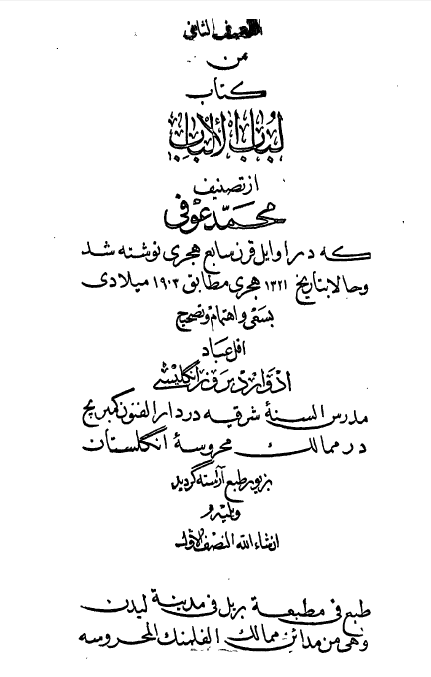 النصف الثانی
من
کتاب
لباب الألباب
از تصنیف
محمد عوفی
که در اوایل قرن سابع هجری نوشته شد
و حالا بتاریخ ۱۳۲۱ هجری مطابق ۱۹۰۳ میلادی
بسعی و اهتمام و تصحیح
اقل عباد
ادوارد برون انگلیسی
مدرس السنهٔ شرقیه در دار الفنون کمبریج
در ممالک محروسهٔ انگلستان
بزیور طبع آراسته گردید
و یلیه
انشاء الله النصف الاول
طبع فی مطبعة بریل فی مدینة لیدن
وهی من مدائن ممالک الفلمنک المحروسه